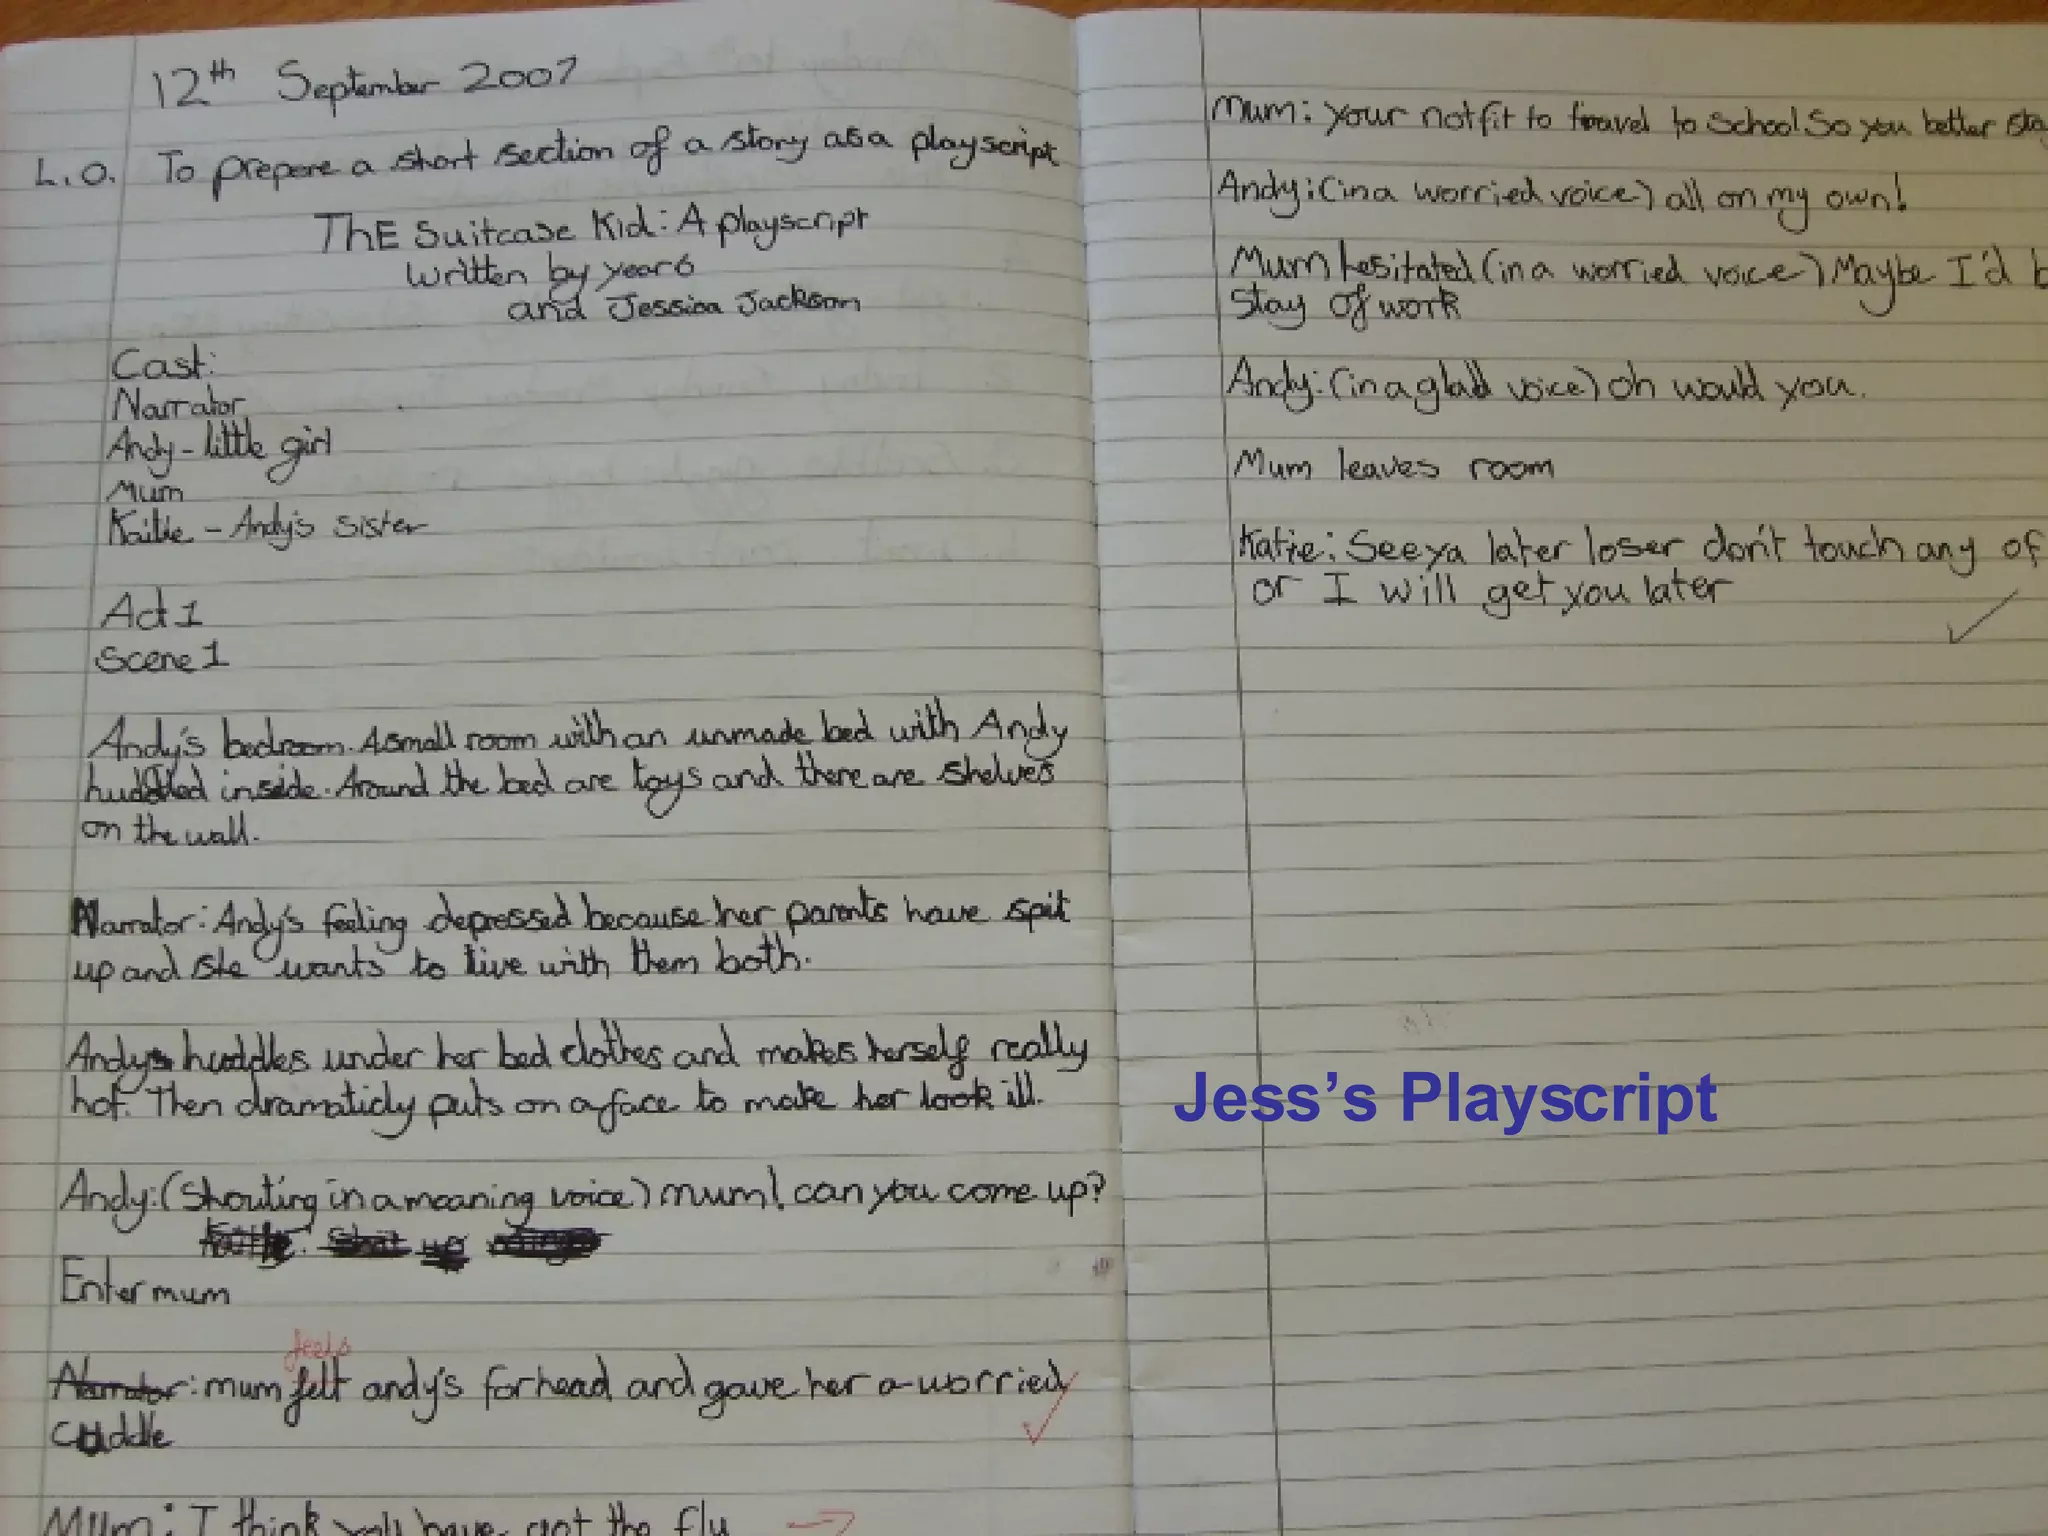 12th September 2007
L.O. To prepere a short section of a story as a playscript
ThE Suitcase Kid: A playscript
written by year 6
and Jessica Jackson
Cast:
Narrator
Andy - little girl
Mum
Kaitie - Andy's sister
Act 1
Scene 1
Andy's bedroom. A small room with an unmade bed with Andy
huddled inside. Around the bed are toys and there are shelves
on the wall.
Narrator: Andy's feeling depressed because her parents have spit
up and she wants to live with them both.
Andy huddles under her bed clothes and makes herself really
hot. Then dramaticly puts on a face to make her look ill.
Andy: (Shouting in a moaning voice) mum! can you come up?
Enter mum
feels
Narrator: mum felt andy's forhead and gave her a worried
cuddle
Mum: I think you have got the flu →
Mum: your not fit to travel to school So you better
Andy: (in a worried voice) all on my own!
Mum hesitated (in a worried voice) Maybe I'd
stay of work
Andy: (in a glad voice) oh would you.
Mum leaves room
Katie: See ya later loser don't touch any of
or I will get you later
Jess’s Playscript